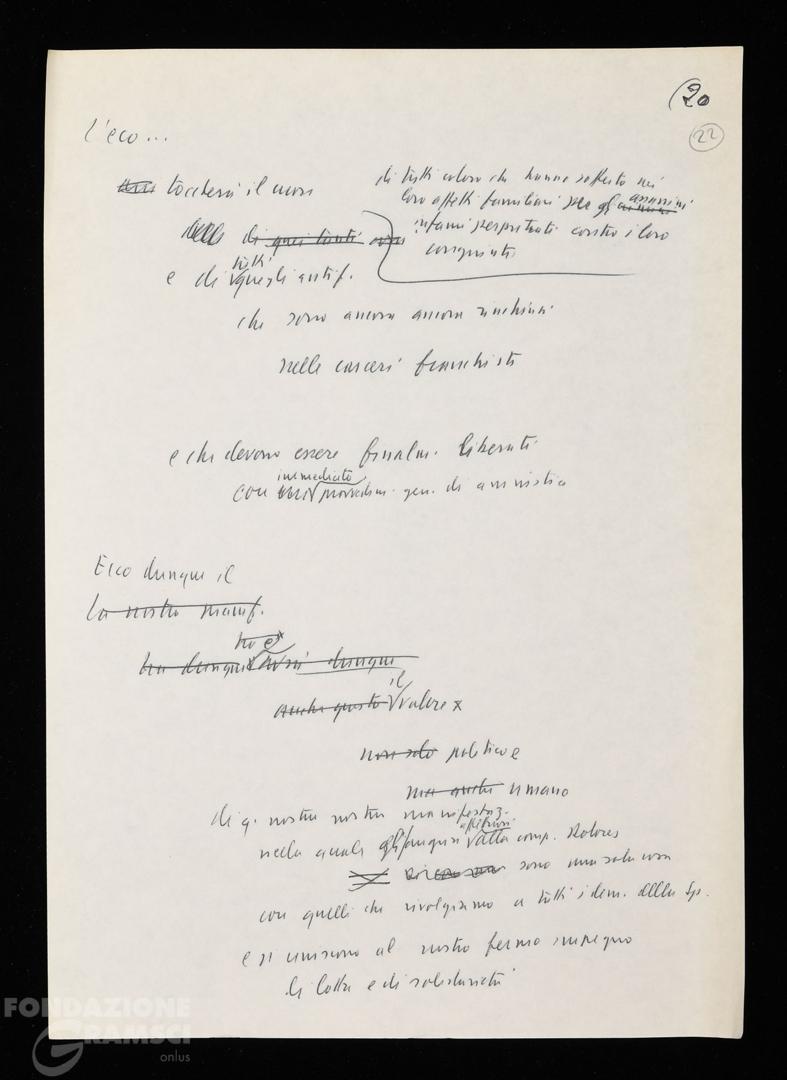 20
22
L'eco...
toccherà il cuore
di tutti coloro che hanno sofferto nei
loro affetti familiari per gli assassinii
infami perpetrati contro i loro
congiunti
delle di quei tanti
e di tutti quegli antif.
che sono ancora ancora rinchiusi
nelle carceri franchiste
e che devono essere finalm. liberati
con immediato provvedim. gen. di amnistia
Ecco dunque il
La nostra manif.
ha dunque dunque
ha e
anche questo il valore x
non solo politico e
ma anche umano
di q. nostra nostra manifestaz.
nella quale gli auguri affettuosi alla comp. Dolores
sono una sola cosa
con quelli che rivolgiamo a tutti i dem. della Sp.
e si uniscono al nostro fermo impegno
di lotta e di solidarietà
FONDAZIONE
GRAMSCI
onlus